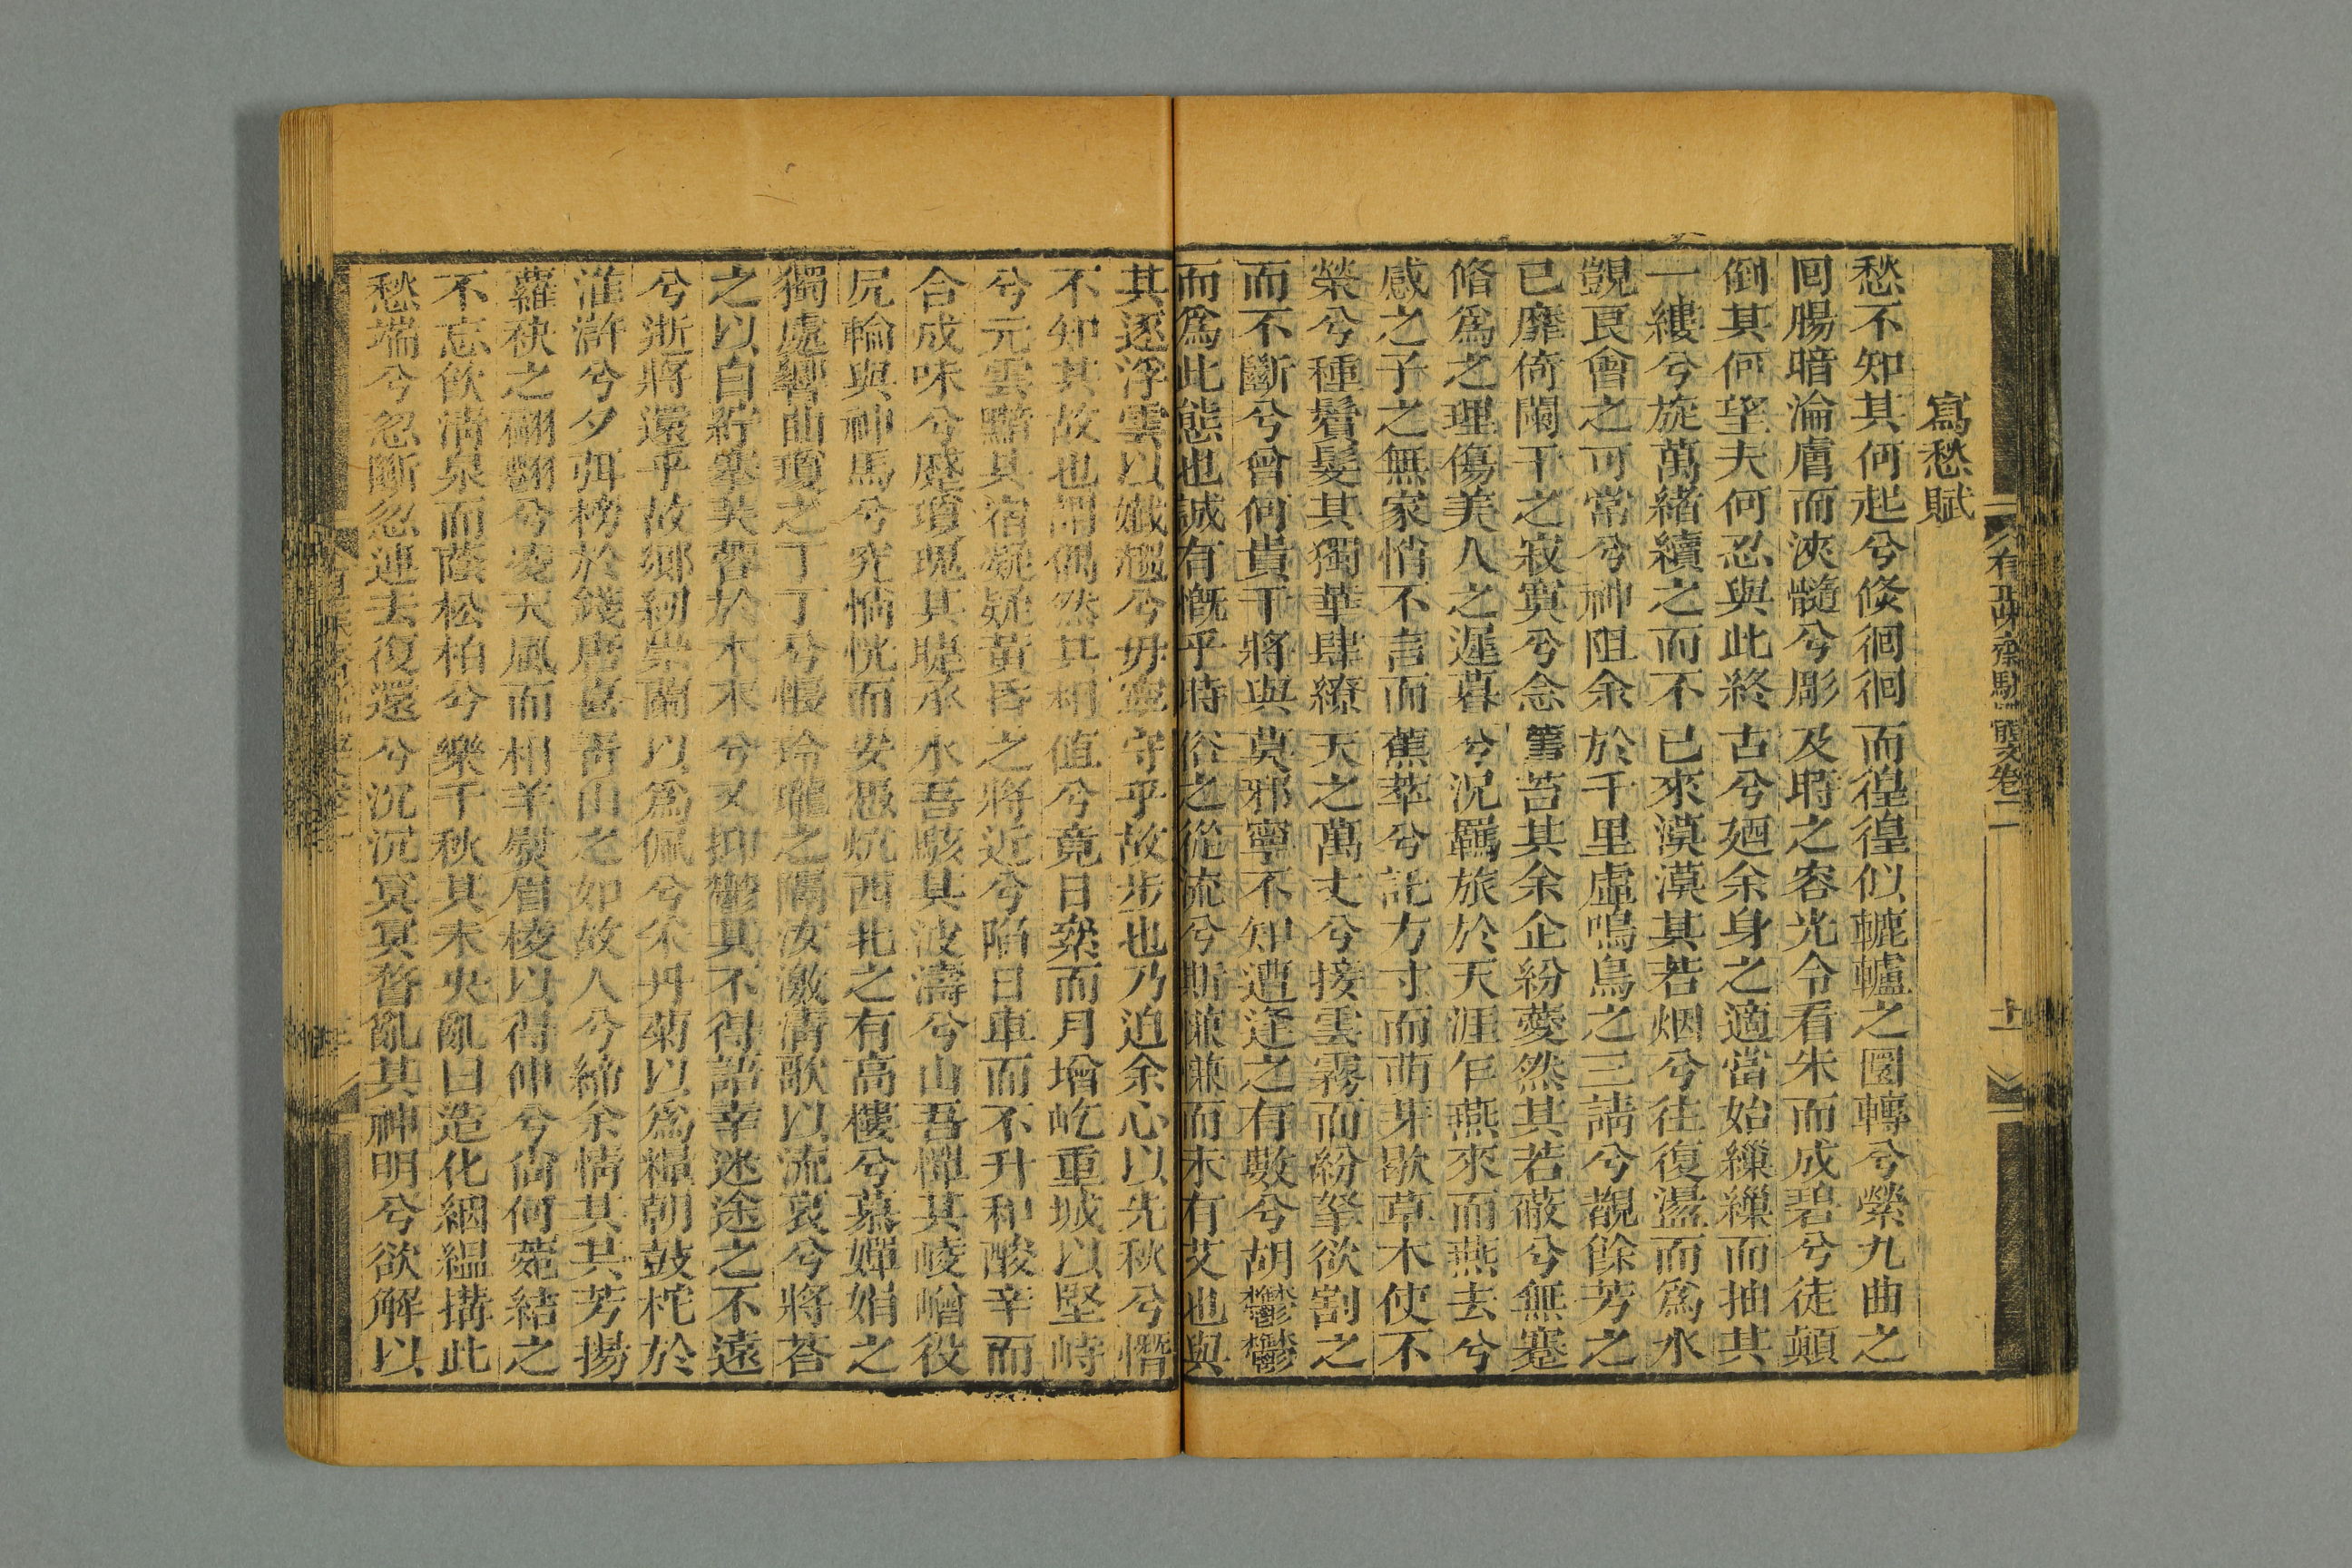 寫愁賦
愁不知其何起兮倐徊徊而徨徨似轆轤之圜轉兮縈九曲之
囘腸暗淪膚而浹髓兮彫及時之容光令看朱而成碧兮徒顛
倒其何望夫何忍與此終古兮廻余身之適當始繅繅而抽其
一縷兮旋萬緒續之而不已來漠漠其若烟兮往復盪而爲水
覬良會之可常兮神阻余於千里虛鳴鳥之三請兮覩餘芳之
已靡倚闌干之寂寞兮念篝苔其余企紛薆然其若蔽兮無蹇
脩爲之理傷美人之遲暮兮況羈旅於天涯乍燕來而燕去兮
感之子之無家悄不言而蕉萃兮託方寸而萌芽歇草木使不
榮兮種鬒髮其獨華肆繚天之萬丈兮接雲霧而紛拏欲割之
而不斷兮曾何貴干將與莫邪寧不知遭逢之有數兮胡鬱鬱
而爲此態也誠有慨乎時俗之從流兮斯蒹蒹而未有艾也與
其逐浮雲以孅趨兮毋寧守乎故步也乃迫余心以先秋兮憯
不知其故也謂偶然其相值兮竟日榮而月增屹重城以堅峙
兮元雲黯其宿凝疑黃昏之將近兮陷日車而不升和酸辛而
合成味兮歷瓊瑰其睫承水吾駭其波濤兮山吾憚其崚嶒役
尻輪與神馬兮究惝恍而安憑炕西北之有高樓兮慕嬋娟之
獨處響曲瓊之丁丁兮悵玲瓏之隔汝激清歌以流哀兮將荅
之以自紵搴芙蓉於木末兮又抑鬱其不得語幸迷途之不遠
兮逝將還乎故鄉紉崇蘭以爲佩兮朱丹菊以爲糧朝鼓柁於
淮滸兮夕弭榜於錢唐喜青山之如故人兮締余情其共芳揚
蘿袂之翩翻兮凌天風而相羊慰眉棱以得伸兮尙何菀結之
不忘飲淸泉而蔭松柏兮樂千秋其未央亂曰造化絪縕搆此
愁端兮忽斷忽連去復還兮沉沉冥冥瞀亂其神明兮欲解以
有正味齋駢體文卷二
十